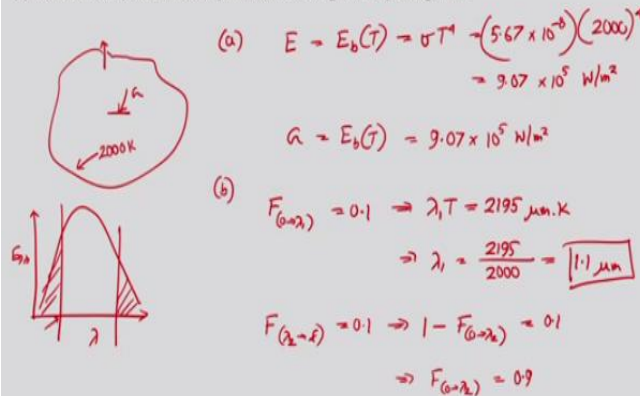 (a) E = E_b(T) = σT⁴ = (5.67 × 10⁻⁸)(2000)⁴
= 9.07 × 10⁵ W/m²
G
2000K
G = E_b(T) = 9.07 × 10⁵ W/m²
(b)
F_(0→λ₁) = 0.1 ⇒ λ₁T = 2195 μm.K
⇒ λ₁ = 2195/2000 = 1.1 μm
λ
F_(λ₂→∝) = 0.1 ⇒ 1 - F_(0→λ₂) = 0.1
⇒ F_(0→λ₂) = 0.9